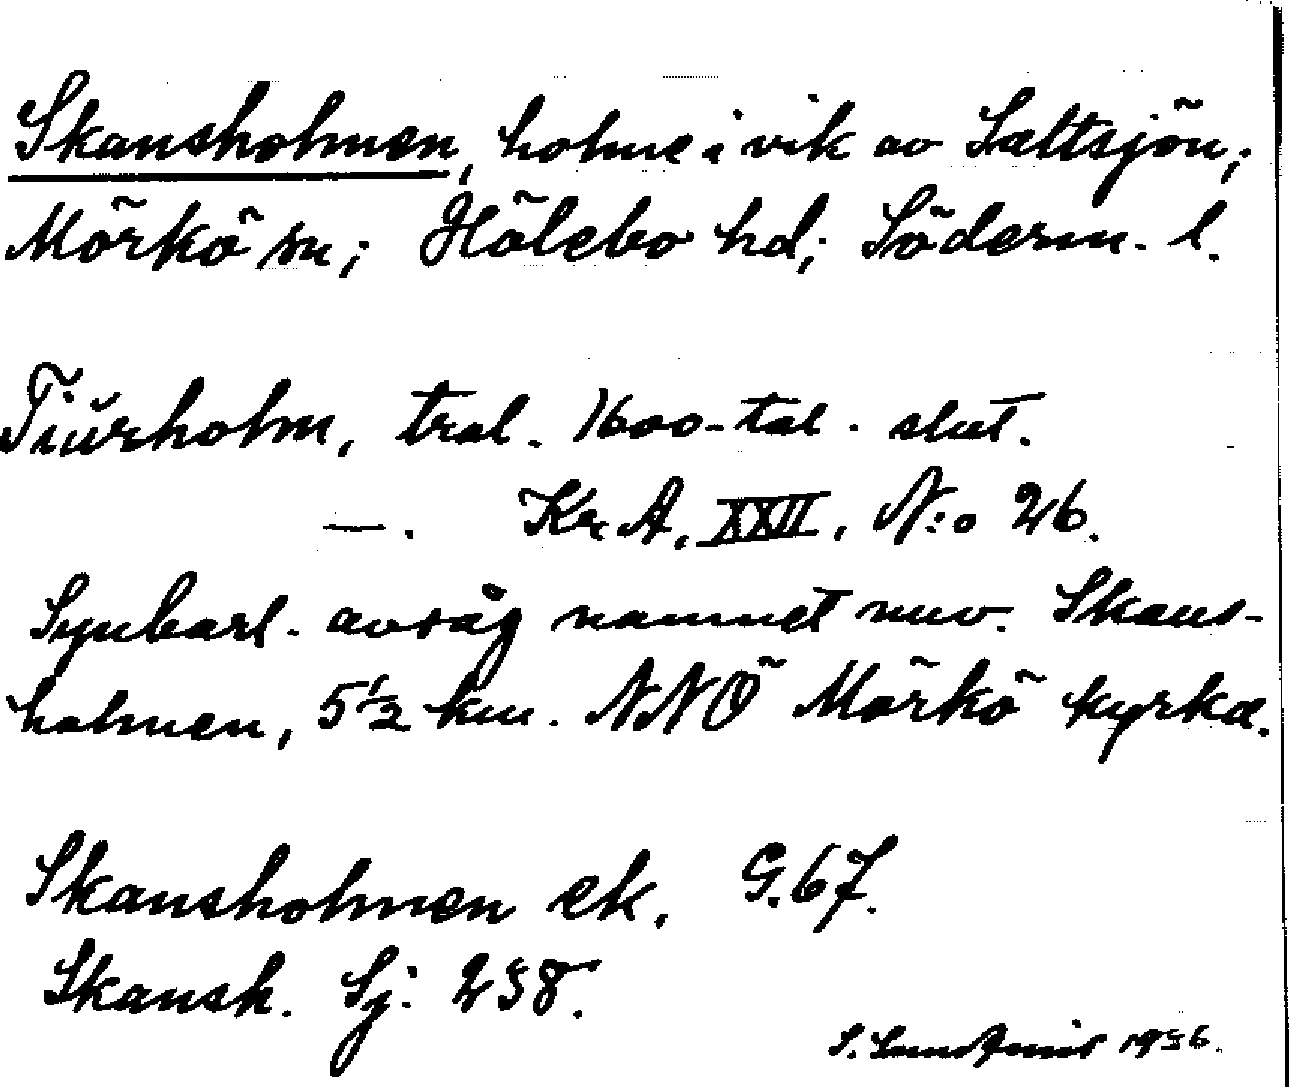 Skansholmen, holme i vik av Saltsjön;
Mörkö sn; Hölebo hd; Söderm. l.
Tiŭrholm, trol. 1600-tal. slut.
—. Kr. A. XXII, N:o 26.
Synbarl. avsåg namnet nuv. Skans-
holmen, 5½ km. NNÖ Mörkö kyrka.
Skansholmen ek. G. 67.
Skansh. Sj: 238.
S. 1936.